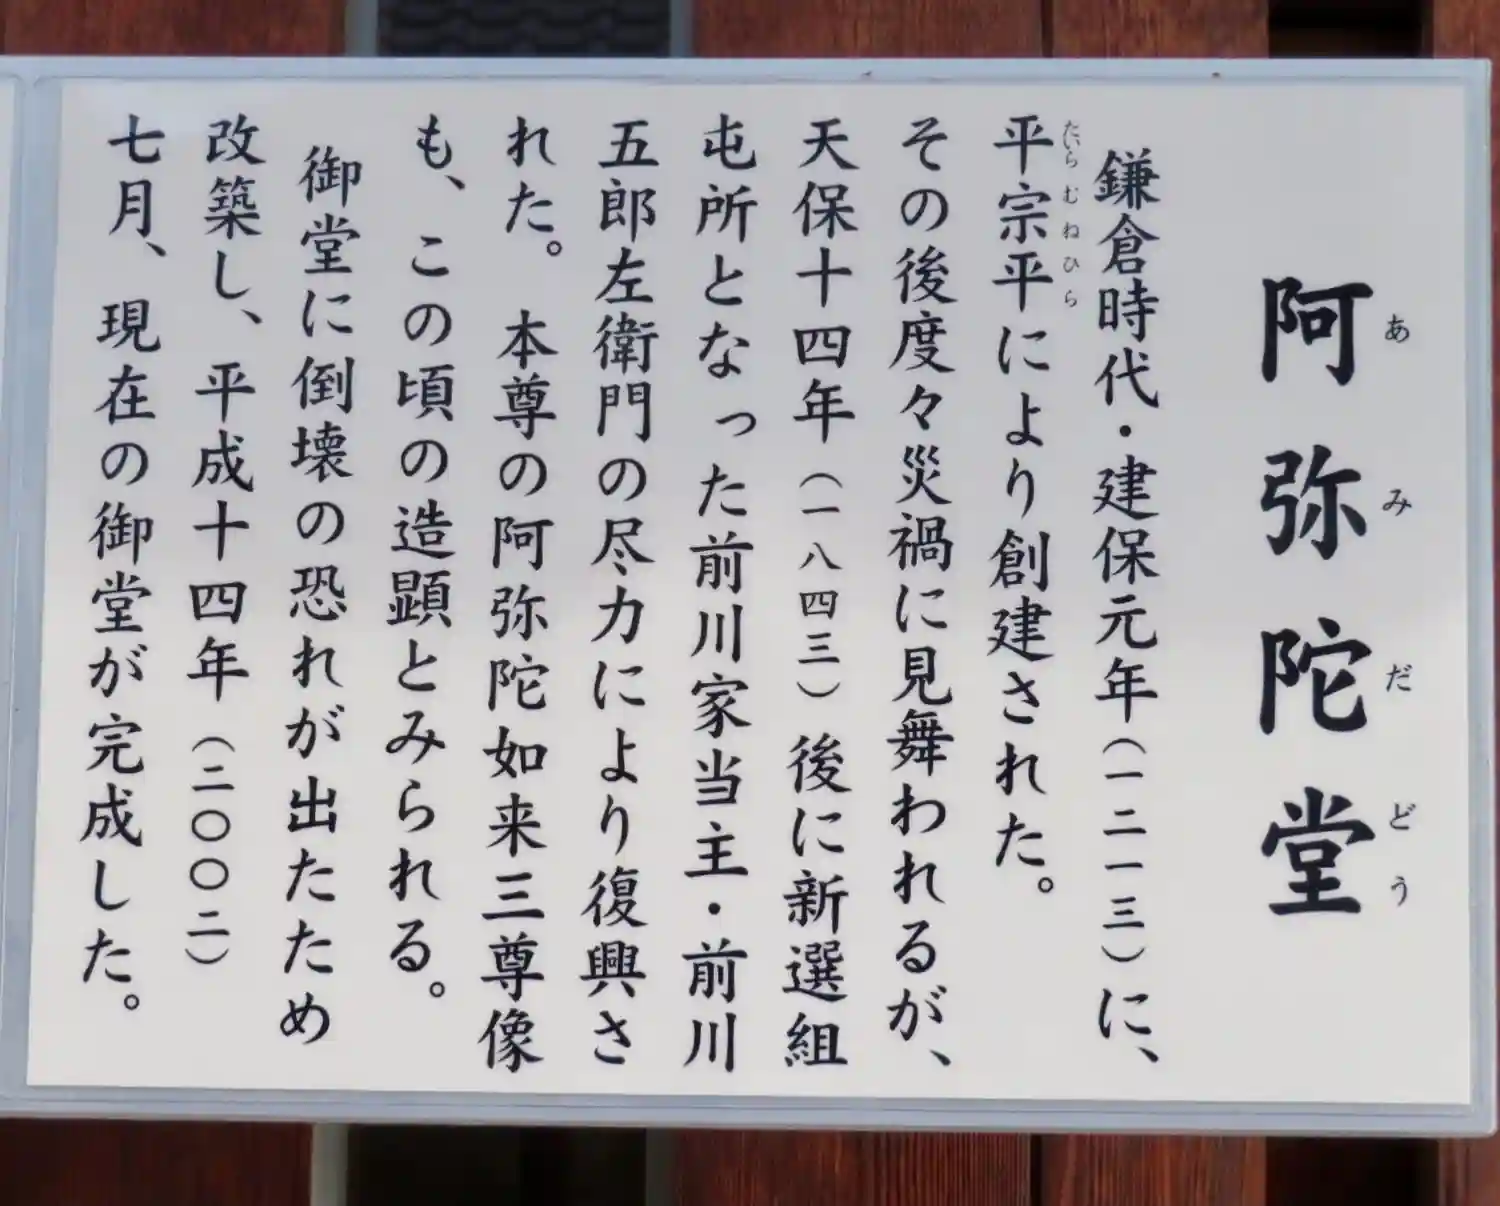 阿弥陀堂
あみだどう
鎌倉時代・建保元年（一二一三）に、
平宗平により創建された。
たいらむねひら
その後度々災禍に見舞われるが、
天保十四年（一八四三）後に新選組
屯所となった前川家当主・前川
五郎左衛門の尽力により復興さ
れた。本尊の阿弥陀如来三尊像
も、この頃の造顕とみられる。
御堂に倒壊の恐れが出たため
改築し、平成十四年（二〇〇二）
七月、現在の御堂が完成した。